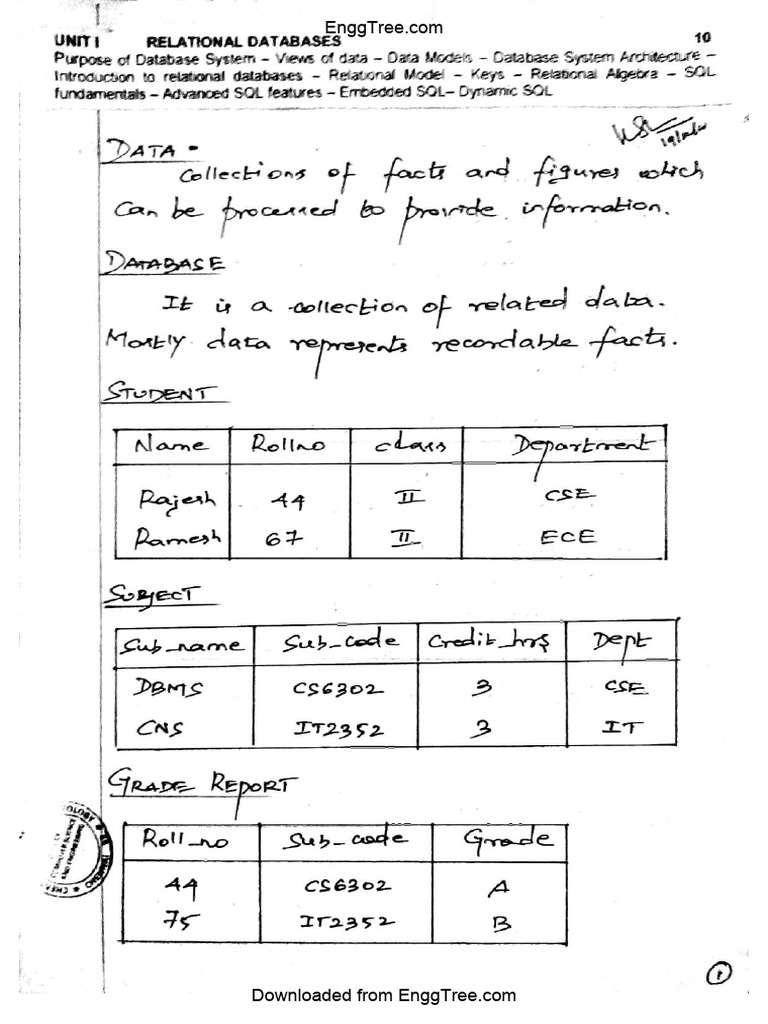 EnggTree.com
UNIT I RELATIONAL DATABASES 10
Purpose of Database System – Views of data – Data Models – Database System Architecture –
Introduction to relational databases – Relational Model – Keys – Relational Algebra – SQL
fundamentals – Advanced SQL features – Embedded SQL– Dynamic SQL
DATA -
Collections of facts and figures which
can be processed to provide information.
DATABASE
It is a collection of related data.
Mostly data represents recordable facts.
STUDENT
Name Rollno class Department
Rajesh 44 II CSE
Ramesh 67 II ECE
SUBJECT
Sub_name Sub_code Credit_hrs Dept
DBMS CS6302 3 CSE
CNS IT2352 3 IT
GRADE REPORT
Roll_no Sub_code Grade
44 CS6302 A
75 IT2352 B
1
Downloaded from EnggTree.com